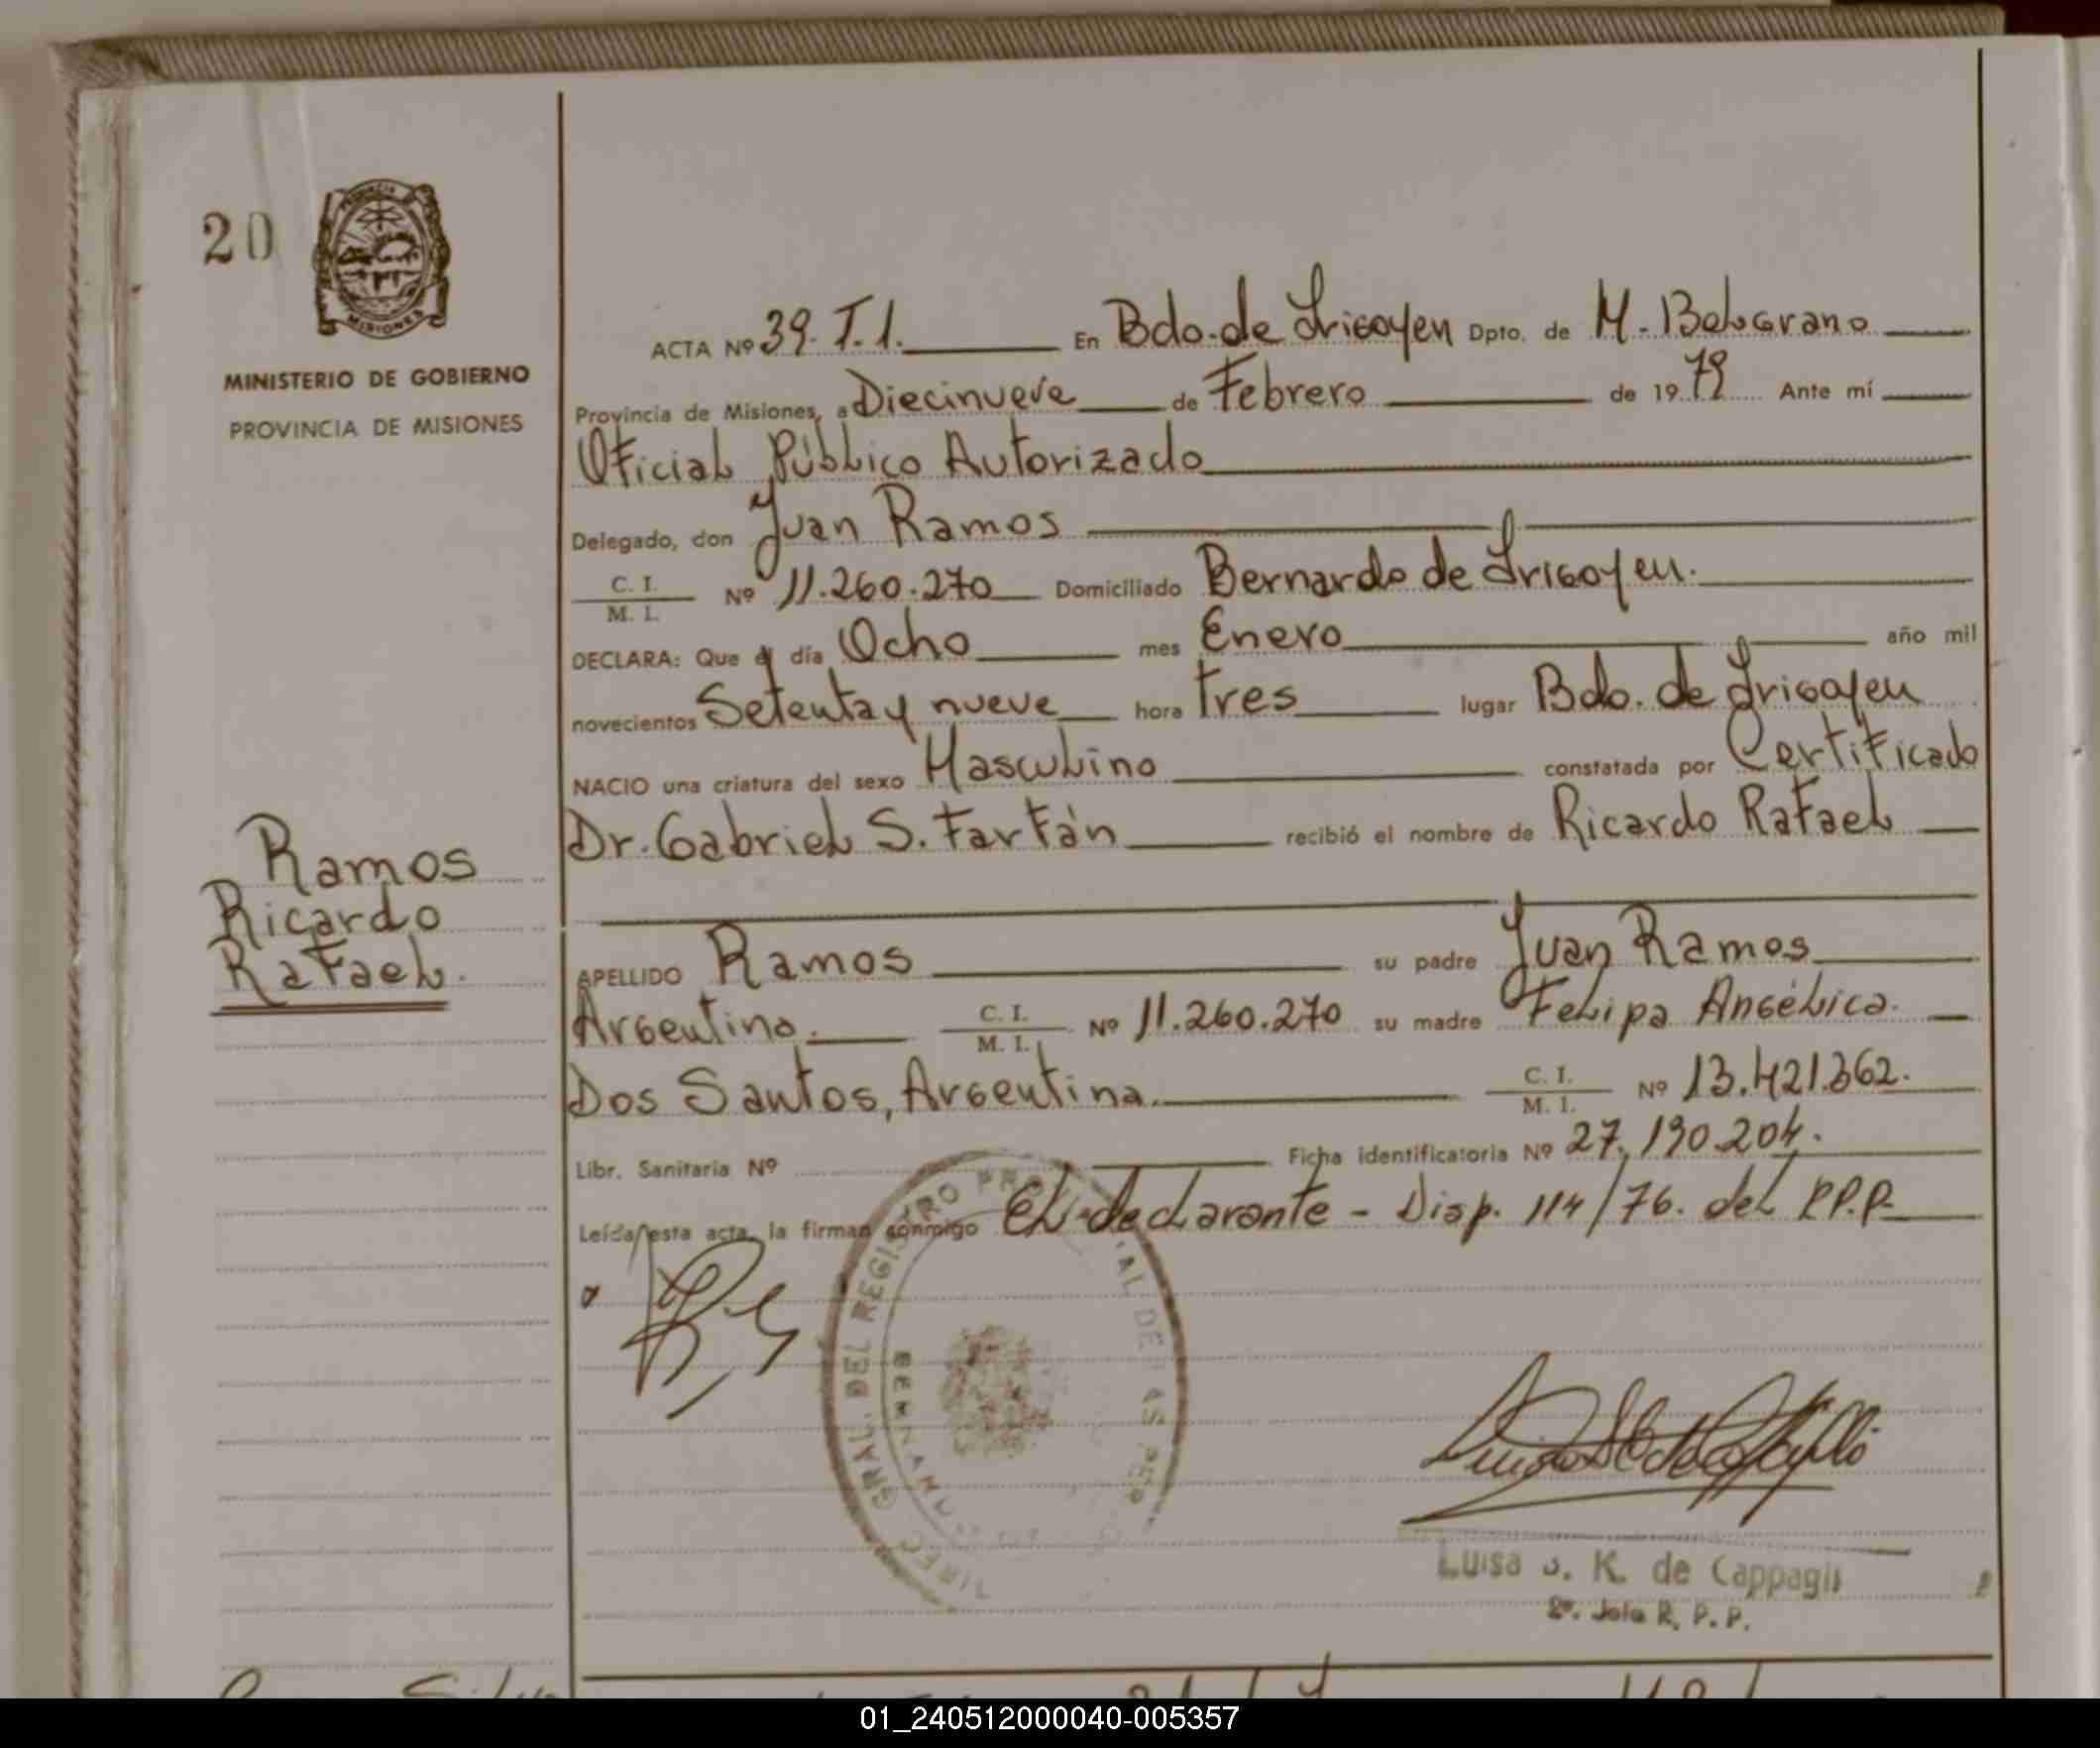 20
PROVINCIA
MISIONES
MINISTERIO DE GOBIERNO
PROVINCIA DE MISIONES
ACTA Nº 39. T. 1. En Bdo. de Irigoyen Dpto. de M. Belgrano
Provincia de Misiones, a Diecinueve de Febrero de 19 79 Ante mí
Oficial Público Autorizado
Delegado, don Juan Ramos
C. I.
M. I. Nº 11.260.270 Domiciliado Bernardo de Irigoyen.
DECLARA: Que el día Ocho mes Enero año mil
novecientos Setenta y nueve hora tres lugar Bdo. de Irigoyen
NACIO una criatura del sexo Masculino constatada por Certificado
Dr. Gabriel S. Farfán recibió el nombre de Ricardo Rafael
Ramos
Ricardo
Rafael.
APELLIDO Ramos su padre Juan Ramos
Argentino. C. I.
M. I. Nº 11.260.270 su madre Felipa Angélica.
Dos Santos, Argentina. C. I.
M. I. Nº 13.421.362.
Libr. Sanitaria Nº Ficha identificatoria Nº 27.190.204.
Leída esta acta, la firman conmigo El declarante - Disp. 114/76. del R.P.P.
DIREC. GRAL. DEL REGISTRO PROVINCIAL DE LAS PERS
Luisa S. K. de Cappagli
2º. Jefe R. P. P.
01_240512000040-005357